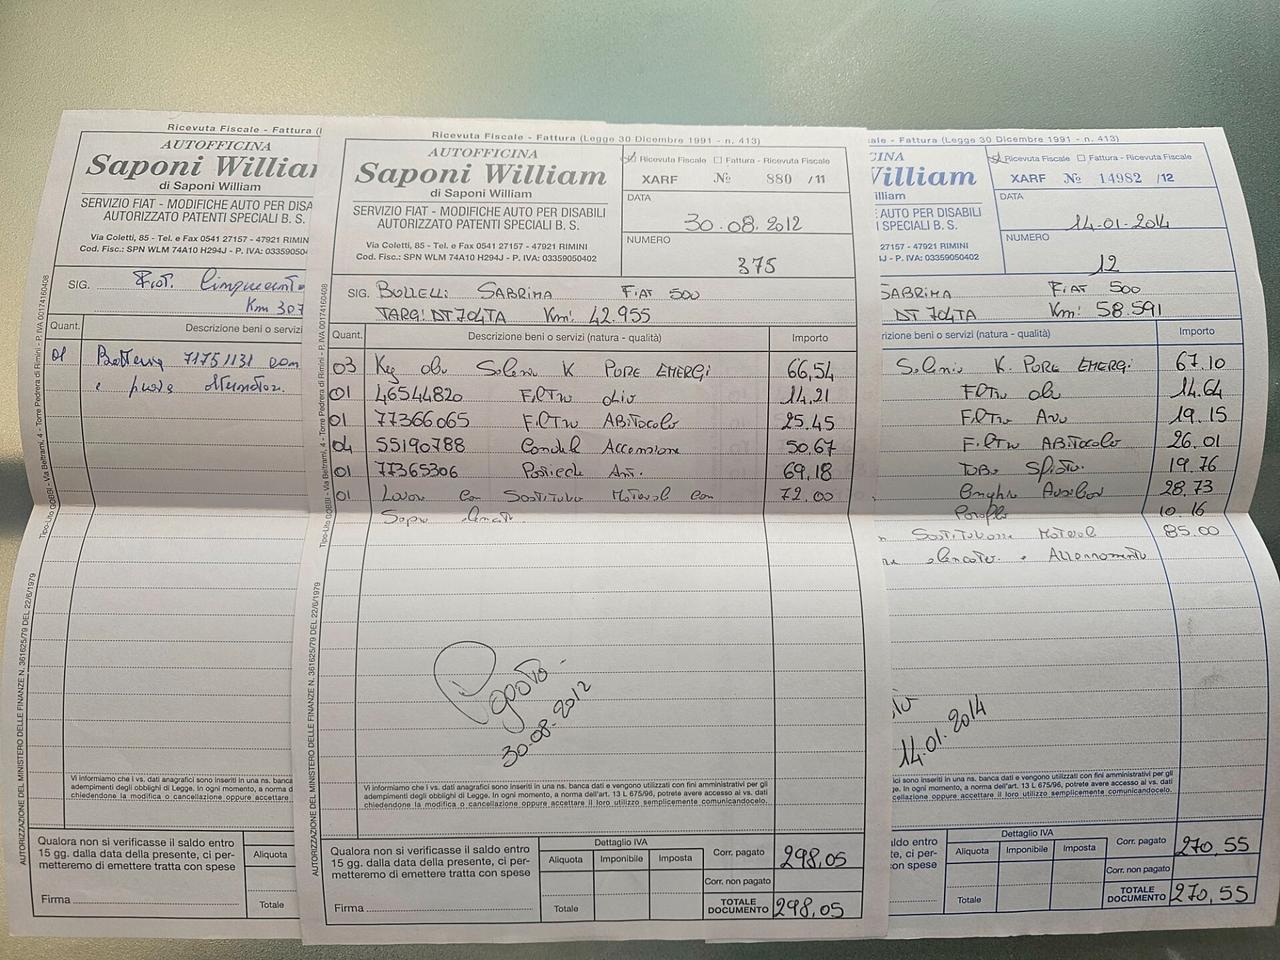 Ricevuta Fiscale - Fattura (
AUTOFFICINA
Saponi William
di Saponi William
SERVIZIO FIAT - MODIFICHE AUTO PER DISA
AUTORIZZATO PATENTI SPECIALI B. S.
Via Coletti, 85 - Tel. e Fax 0541 27157 - 47921 RIMINI
Cod. Fisc.: SPN WLM 74A10 H294J - P. IVA: 0335905040
SIG. Fiat Cinquecento
Km 307
Quant. Descrizione beni o servizi
01 Batteria 71751131 con
Vi informiamo che i vs. dati anagrafici sono inseriti in una ns. banca
adempimenti degli obblighi di Legge. In ogni momento, a norma d
chiedendone la modifica o cancellazione oppure accettare
Qualora non si verificasse il saldo entro
15 gg. dalla data della presente, ci per-
metteremo di emettere tratta con spese
Firma
Aliquota
Totale
AUTORIZZAZIONE DEL MINISTERO DELLE FINANZE N. 361625/79 DEL 22/6/1979
Ricevuta Fiscale - Fattura (Legge 30 Dicembre 1991 - n. 413)
AUTOFFICINA
Saponi William
di Saponi William
SERVIZIO FIAT - MODIFICHE AUTO PER DISABILI
AUTORIZZATO PATENTI SPECIALI B. S.
Via Coletti, 85 - Tel. e Fax 0541 27157 - 47921 RIMINI
Cod. Fisc.: SPN WLM 74A10 H294J - P. IVA: 03359050402
Ricevuta Fiscale Fattura - Ricevuta Fiscale
XARF № 880 /11
DATA
30.08.2012
NUMERO
375
SIG. BULLELLi SABRINA FiAT 500
TARG: DT704TA Km: 42.955
Quant. Descrizione beni o servizi (natura - qualità) Importo
03 Kg olio Selenia K PURE EMERGi 66,54
01 46544820 FilTro olio 14.21
01 77366065 FilTro ABiTacolo 25.45
04 55190788 Candele Accensione 50.67
01 77365306 Ant. 69,18
01 Lavoro con Sostituz Materiale con 72.00
Sopra elencato.
Pagato
30-08-2012
Vi informiamo che i vs. dati anagrafici sono inseriti in una ns. banca dati e vengono utilizzati con fini amministrativi per gli
adempimenti degli obblighi di Legge. In ogni momento, a norma dell'art. 13 L 675/96, potrete avere accesso al vs. dati
chiedendone la modifica o cancellazione oppure accettare il loro utilizzo semplicemente comunicandocelo.
Qualora non si verificasse il saldo entro
15 gg. dalla data della presente, ci per-
metteremo di emettere tratta con spese
Firma
Dettaglio IVA
Aliquota Imponibile Imposta
Totale
Corr. pagato 298,05
Corr. non pagato
TOTALE DOCUMENTO 298,05
AUTORIZZAZIONE DEL MINISTERO DELLE FINANZE N. 361625/79 DEL 22/6/1979
ale - Fattura (Legge 30 Dicembre 1991 - n. 413)
CINA
William
illiam
AUTO PER DISABILI
I SPECIALI B. S.
0541 27157 - 47921 RIMINI
J - P. IVA: 03359050402
Ricevuta Fiscale Fattura - Ricevuta Fiscale
XARF № 14982 /12
DATA
14-01-2014
NUMERO
12
SABRINA FiAT 500
DT 704TA Km: 58.591
rizi (natura - qualità) Importo
Selenia K. PURE EMERGi 67.10
FilTro olio 14.64
FilTro Aria 19.15
FilTro ABiTacolo 26.01
TUBO Sfiato. 19.76
Cinghia Ausiliari 28.73
10.16
Sostituzione Materiale 85.00
elencato. e
14.01.2014
ici sono inseriti in una ns. banca dati e vengono utilizzati con fini amministrativi per gli
ge. In ogni momento, a norma dell'art. 13 L 675/96, potrete avere accesso al vs. dati
cellazione oppure accettare il loro utilizzo semplicemente comunicandocelo.
aldo entro
te, ci per-
con spese
Dettaglio IVA
Aliquota Imponibile Imposta
Totale
Corr. pagato 270,55
Corr. non pagato
TOTALE DOCUMENTO 270,55